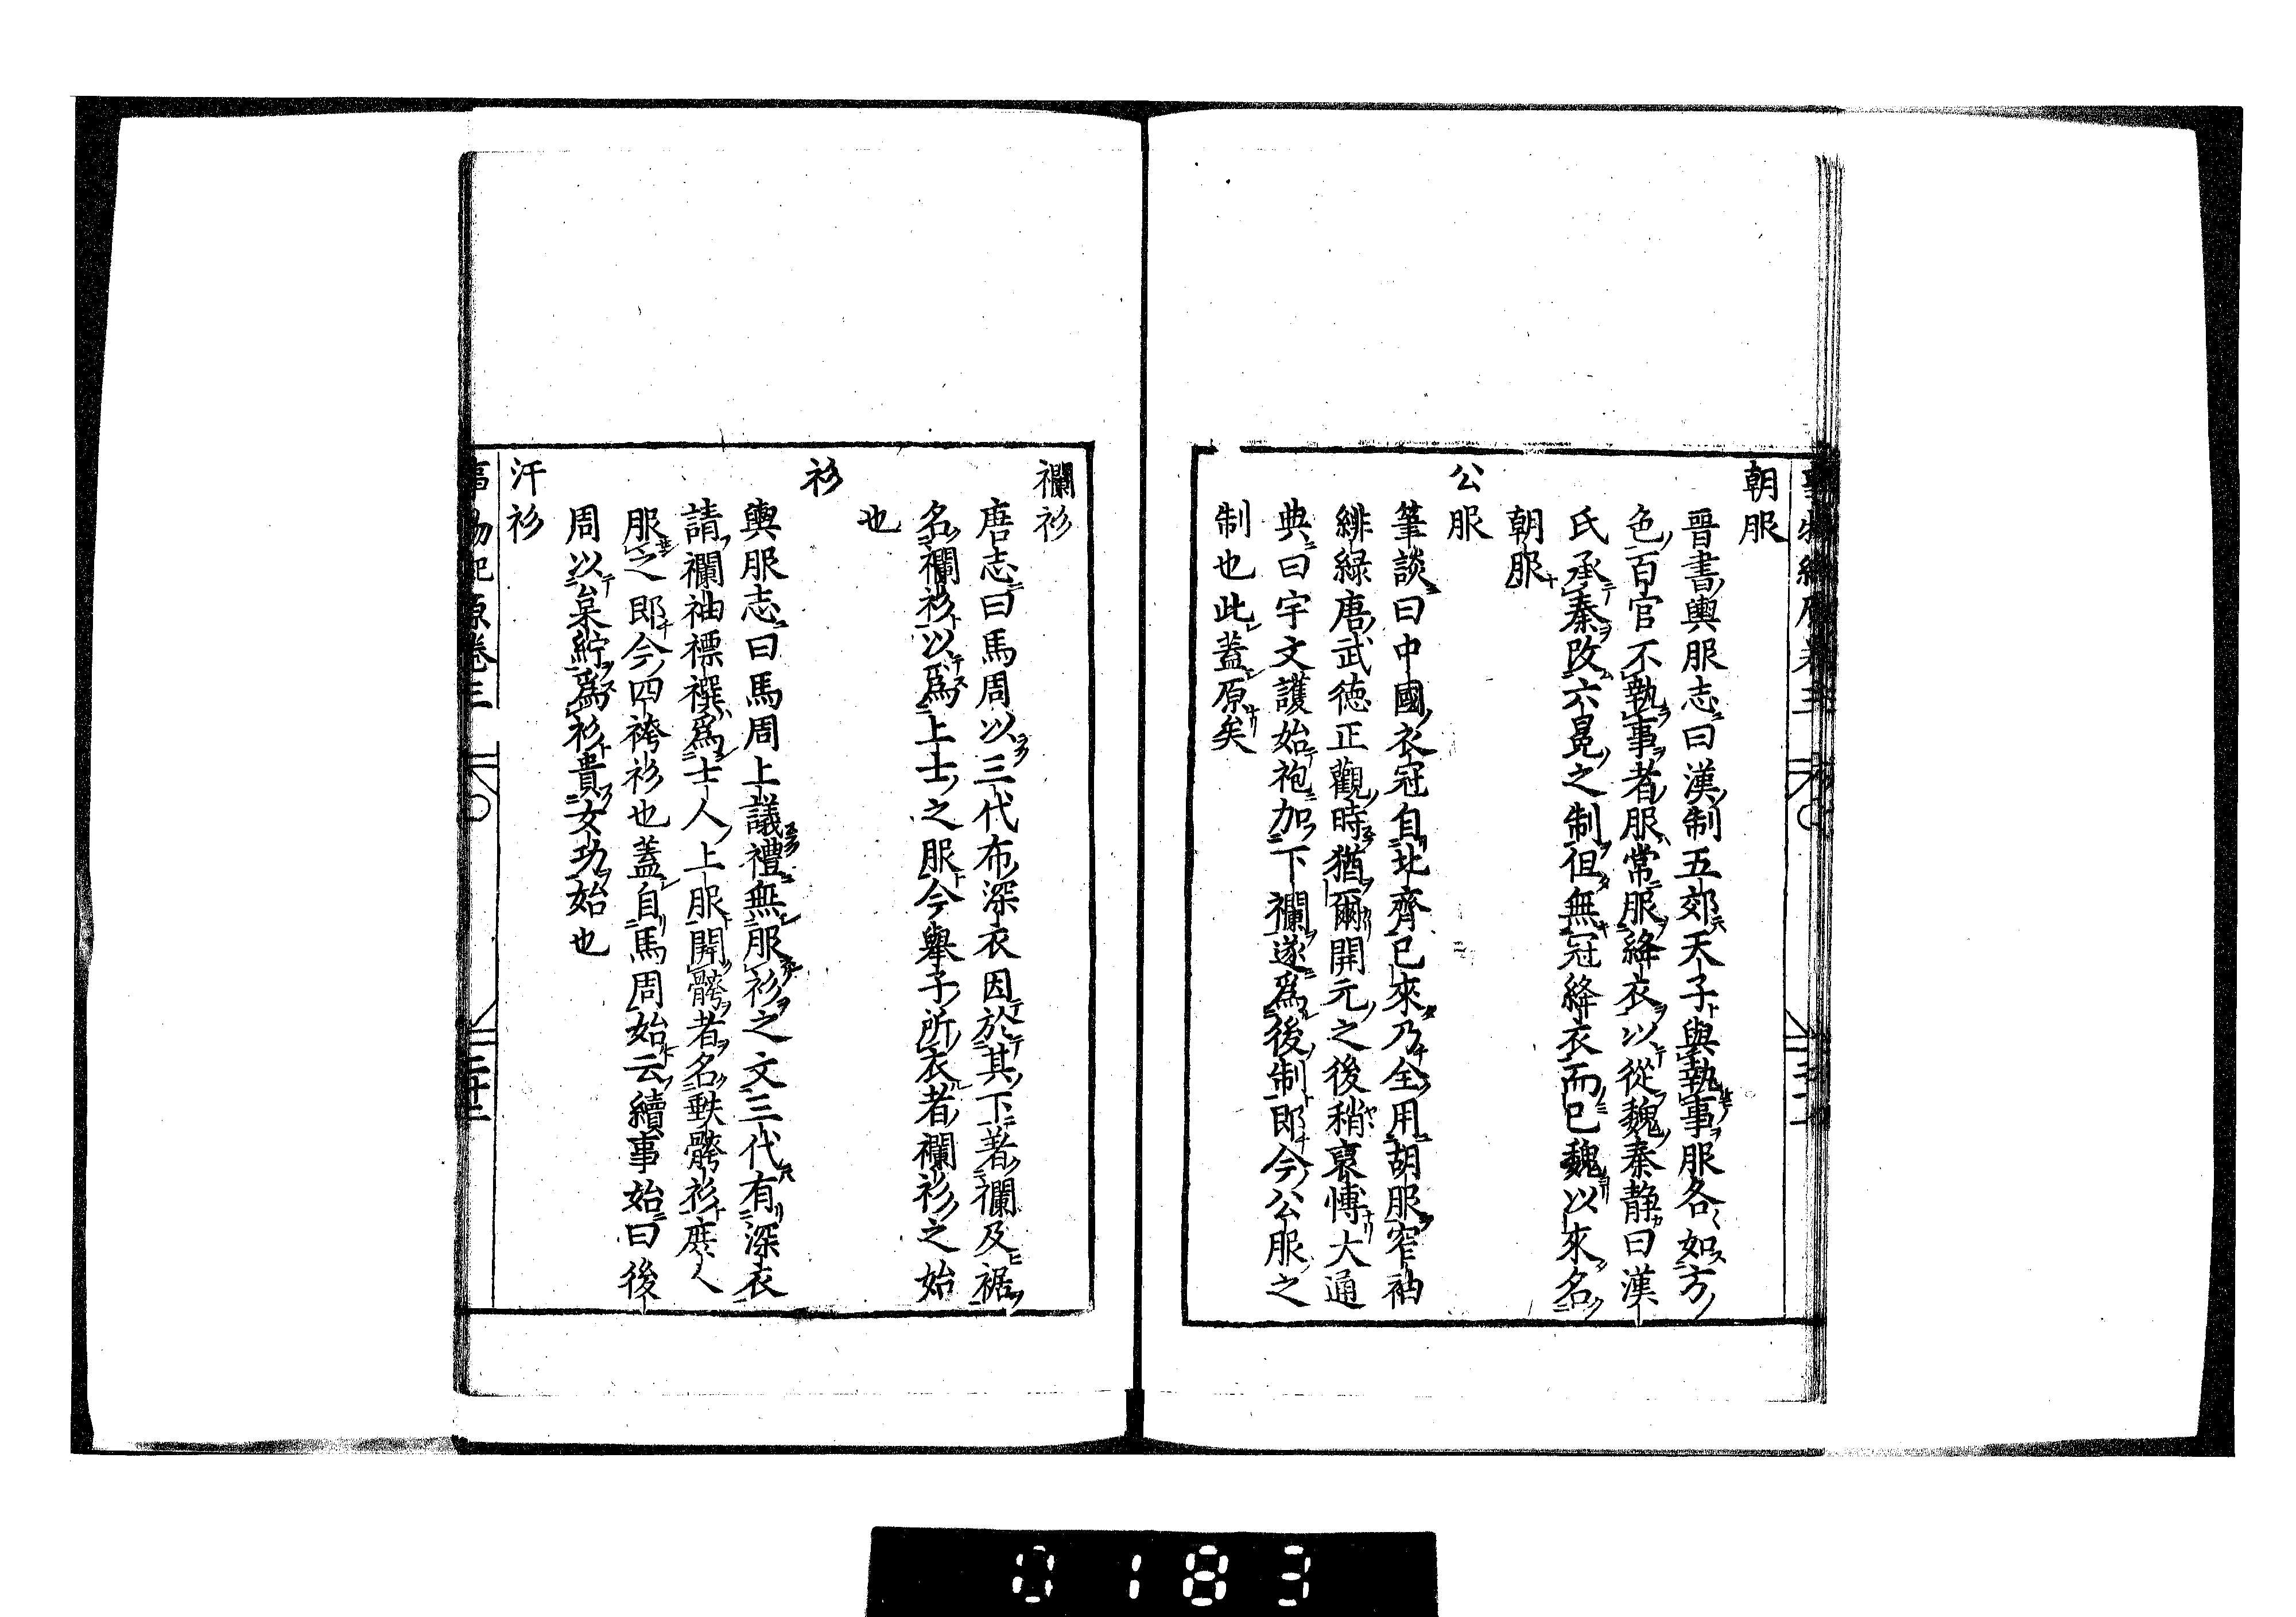 朝服
晉書輿服志曰漢制五郊天子與執事服各如方
色百官不執事者服常服絳衣以從魏秦靜曰漢
氏承秦改六冕之制但無冠絳衣而已魏以來名
朝服
公服
筆談曰中國衣冠自北齊已來乃全用胡服窄袖
緋緑唐武德正觀時猶爾開元之後稍裒愽大通
典曰宇文護始袍加下襴遂爲後制即今公服之
制也此蓋原矣
襴衫
唐志曰馬周以三代布深衣因於其下著襴及裾
名襴衫以爲上士之服今舉子所衣者襴衫之始
也
衫
輿服志曰馬周上議禮無服衫之文三代有深衣
請襴袖褾襈爲士人上服開骻者名軼骻衫庶人
服之即今四袴衫也蓋自馬周始云續事始曰後
周以枲紵爲衫貴女功始也
汗衫
事物紀原卷三 二十二
0183